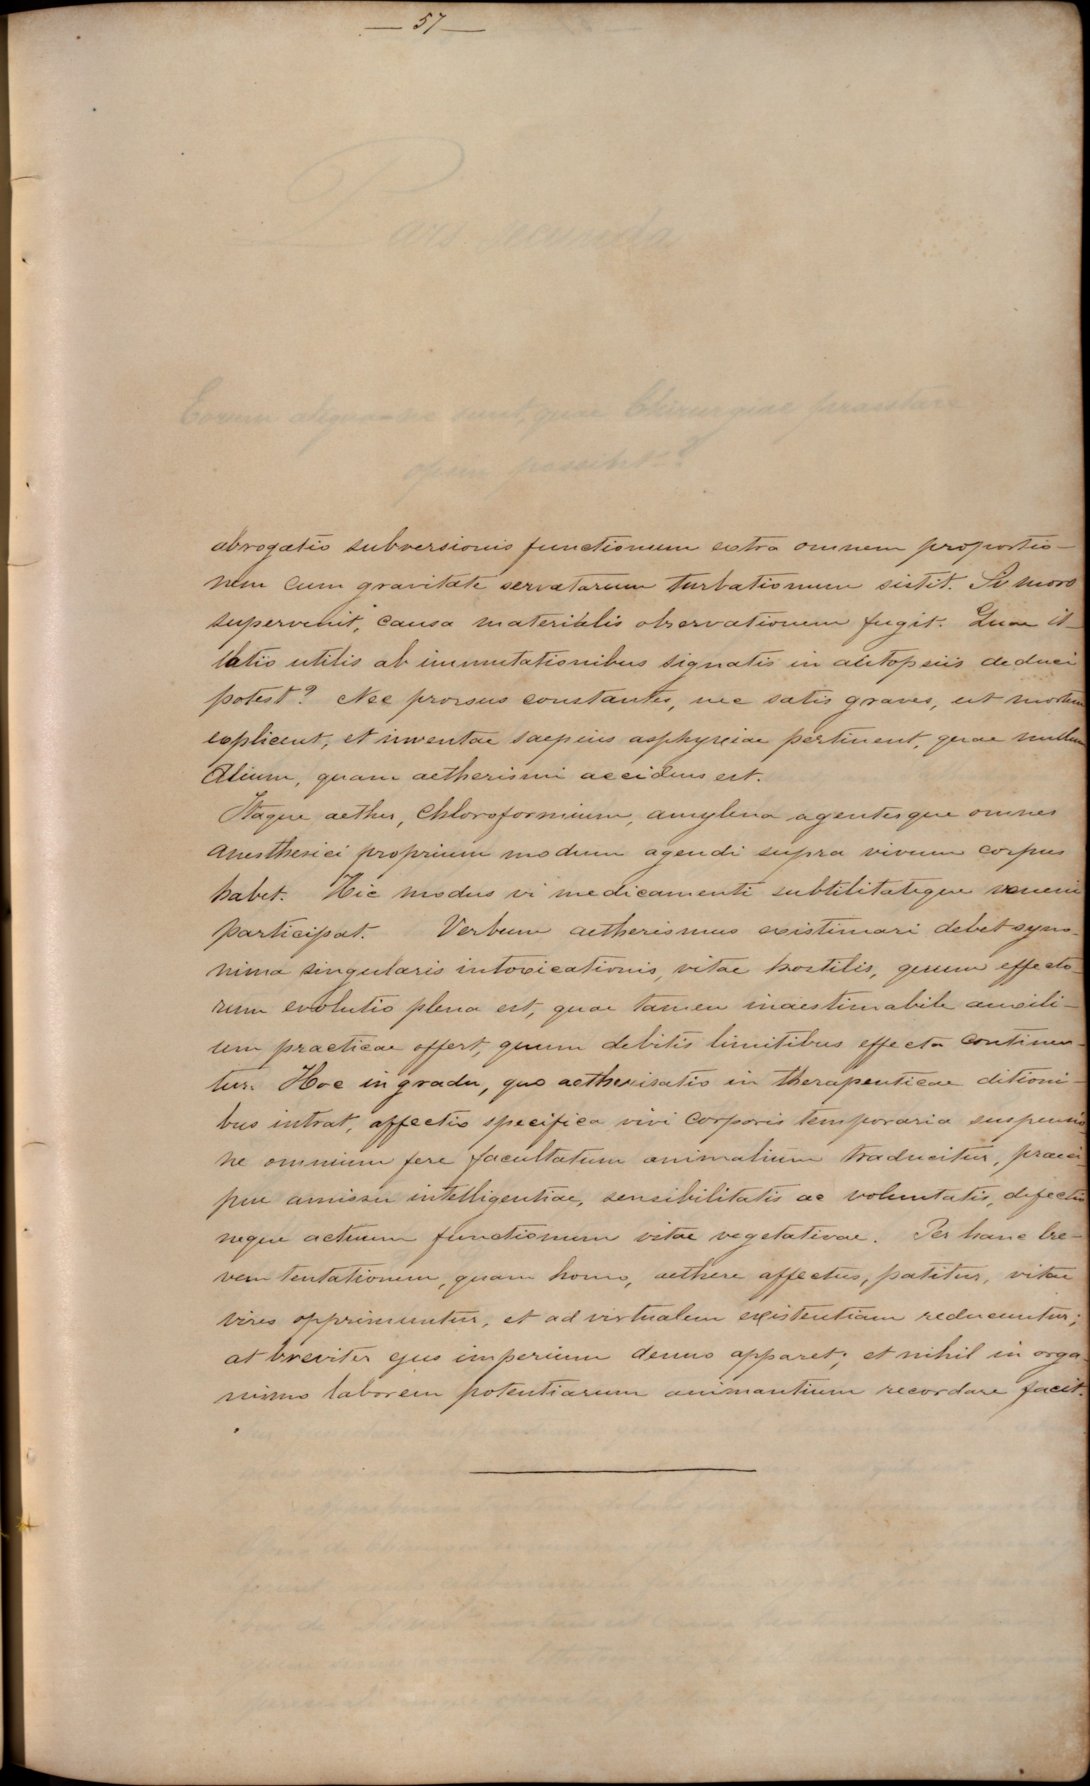 — 57 —
abrogatio subversionis functionum extra omnem proportio-
nem cum gravitate servatarum turbationum sistit. Si mors
supervenit, causa materialis observationem fugit. Quae il-
latio utilis ab immutationibus signatis in autopsiis deduci
potest? Nec prorsus constantes, nec satis graves, ut mortem
explicent, et inventae saepius asphyxiae pertinent, quae nullum
alium, quam aetherismi accidens est.
Itaque aether, chloroformium, amylena agentesque omnes
anesthesici proprium modum agendi supra vivum corpus
habet. Hic modus vi medicamenti subtilitateque veneni
participat. Verbum aetherismus existimari debet syno-
nima singularis intoxicationis, vitae hostilis, quum effecto-
rum evolutio plena est, quae tamen inaestimabile auxili-
um practicae offert, quum debitis limitibus effecta continen-
tur. Hoc in gradu, quo aetherisatio in therapeuticae ditioni-
bus intrat, affectio specifica vivi corporis temporaria suspensio-
ne omnium fere facultatum animalium traducitur, praeci-
pue amissu intelligentiae, sensibilitatis ac voluntatis, defectu
neque actuum functionum vitae vegetativae. Per hanc bre-
vem tentationem, quam homo, aethere affectus, patitur, vitae
vires opprimuntur, et ad virtualem existentiam reducuntur;
at breviter ejus imperium denuo apparet; et nihil in orga-
nismo laborem potentiarum animantium recordare facit.